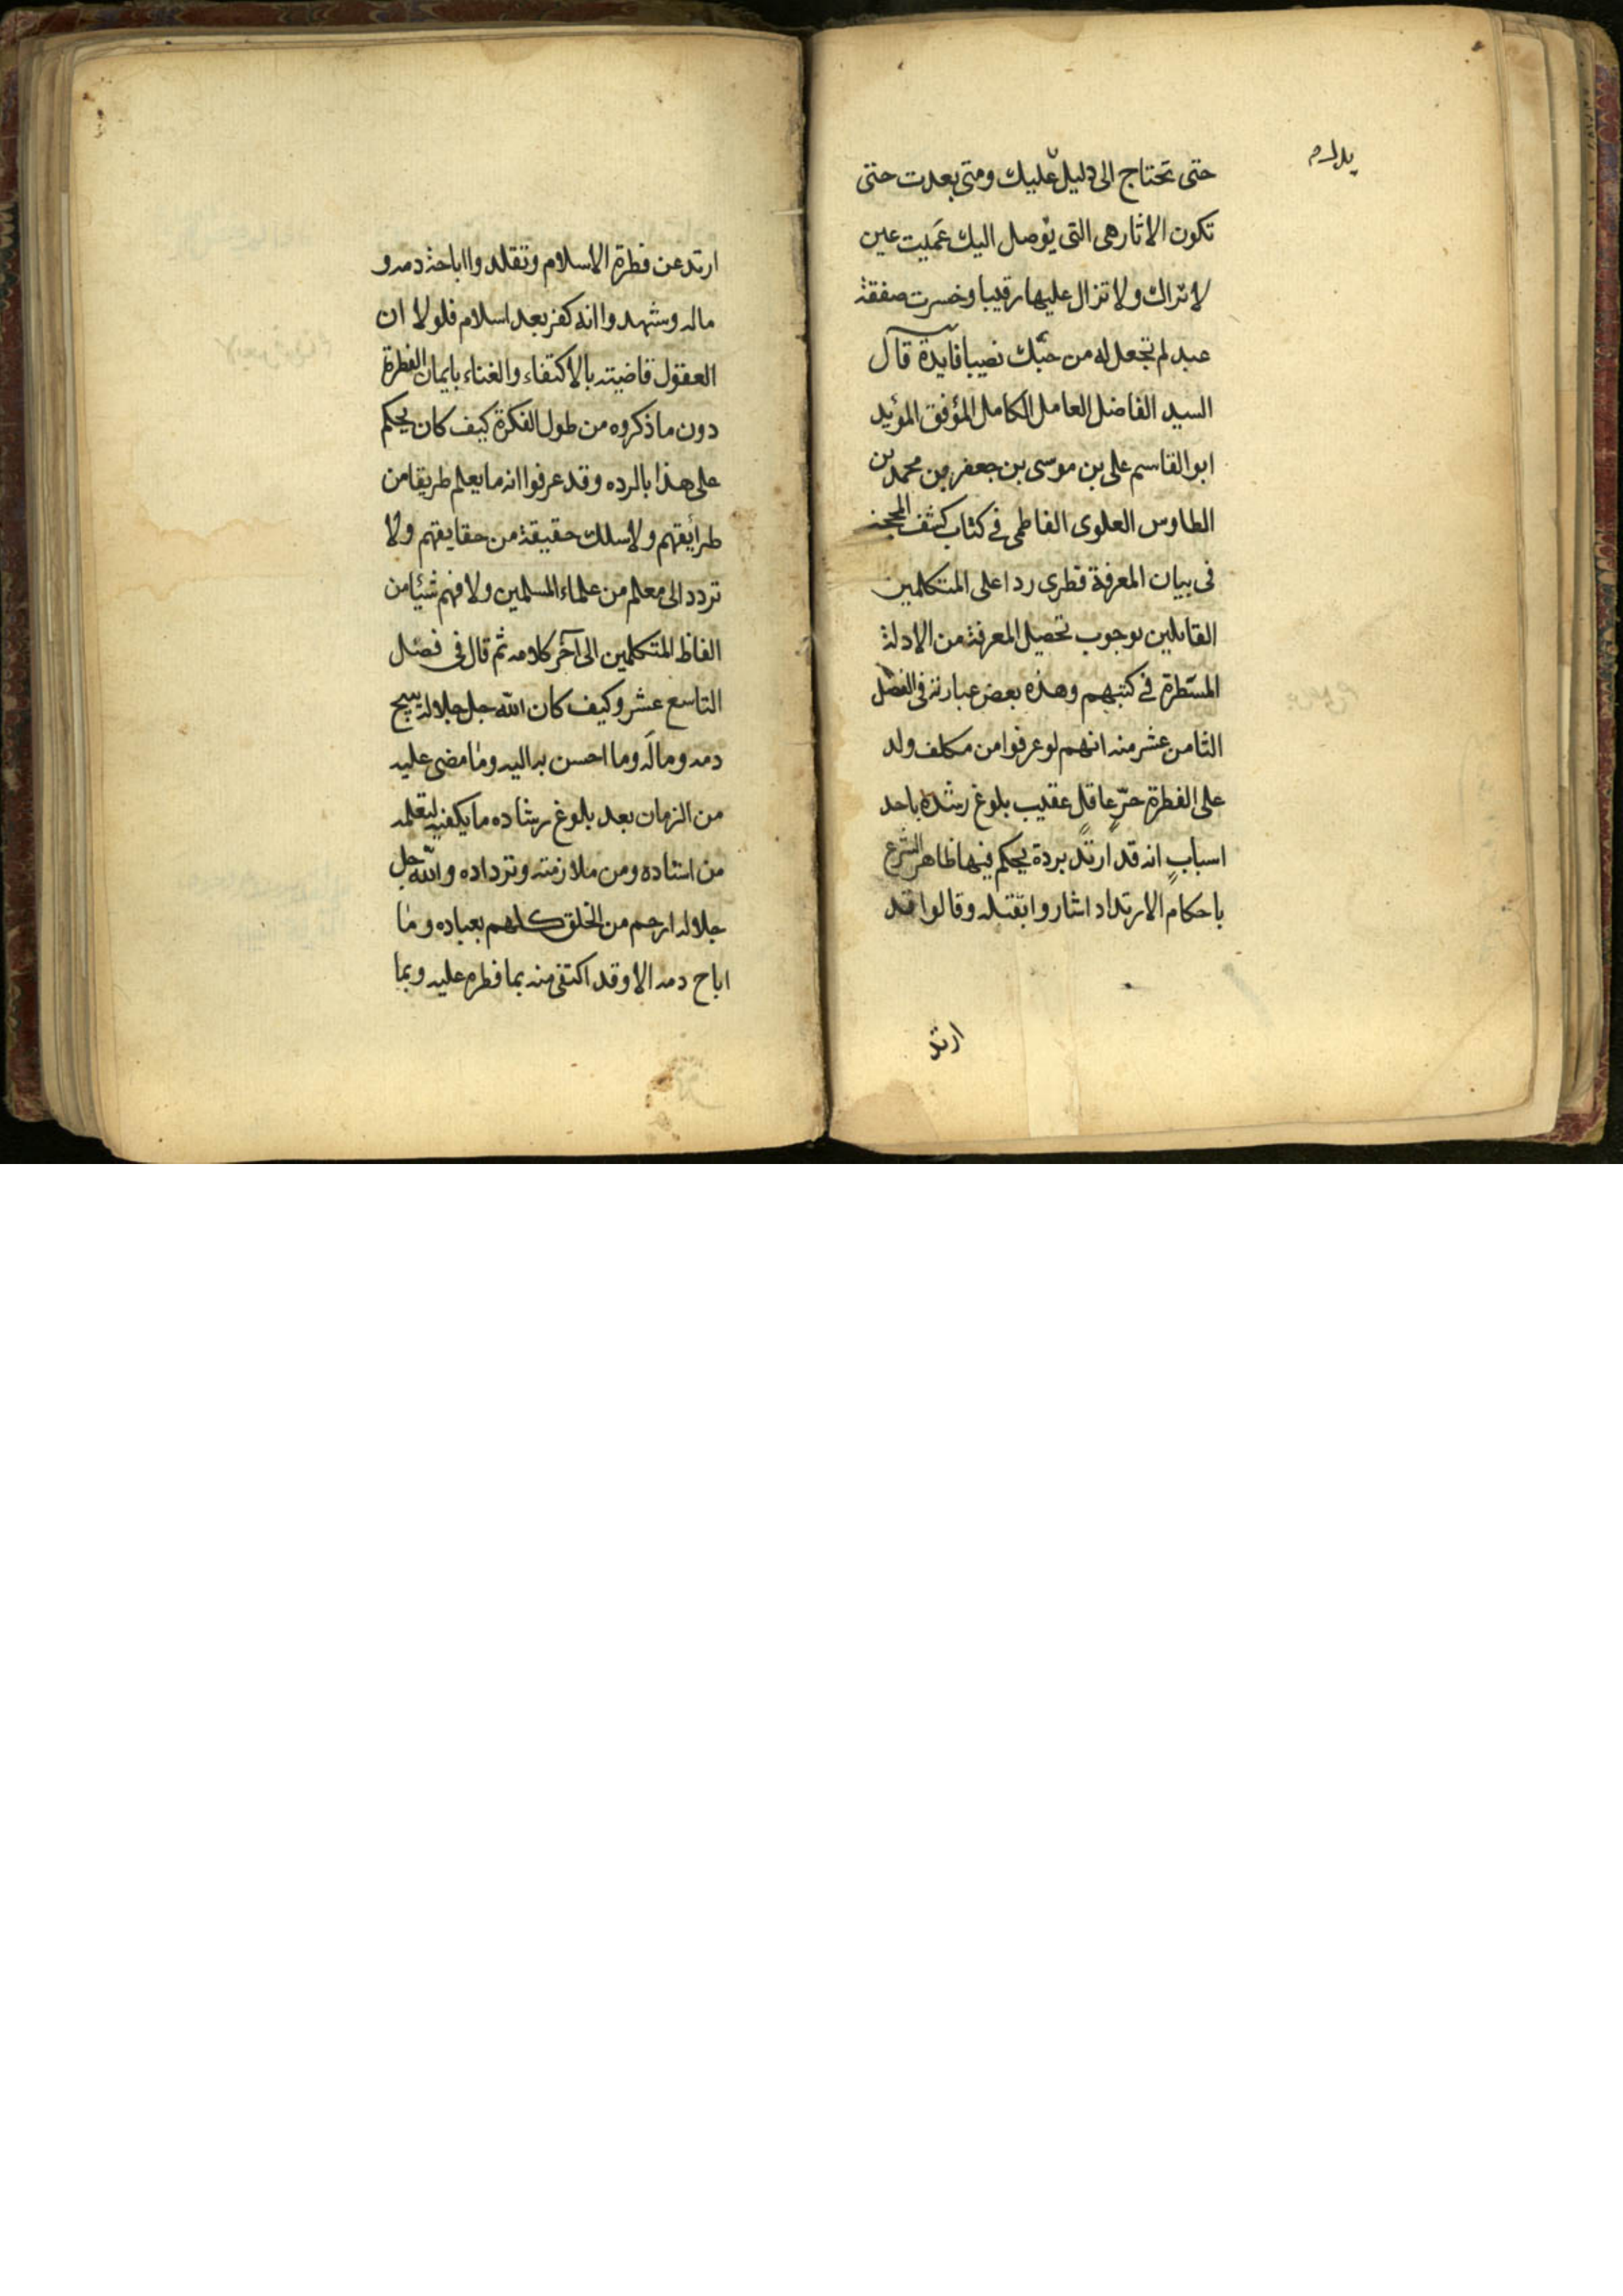 حتى تحتاج الى دليل عليك ومتى بعدت حتى
تكون الاثار هى التى توصل اليك عَمَيت عين
لا تراك ولا تزال عليها رقيبا وخسرت صفقة
عبد لم تجعل له من حبّك نصيبا فايدة قال
السيد الفاضل العامل الكامل المؤفق المؤيد
ابو القاسم على بن موسى بن جعفر بن محمد بن
الطاوس العلوى الفاطمى فى كتاب كشف المحجة
فى بيان المعرفة فطرى ردا على المتكلمين
القايلين بوجوب تحصيل المعرفة من الادلة
المستطرة فى كتبهم وهذه بعض عبارته فى الفصل
الثامن عشر منه انهم لو عرفوا من مكلف ولد
على الفطرة حرّ عاقل عقيب بلوغ رشده باحد
اسباب انه قد ارتد بردة يحكم فيها ظاهر الشرع
باحكام الارتداد اشاروا بقتله وقالوا قد
ارتد
ارتد عن فطرة الاسلام وتقلدوا اباحة دمه و
ماله وشهدوا انه كفر بعد اسلام فلولا ان
العقول قاضيته بالاكتفاء والغناء بايمان الفطرة
دون ما ذكروه من طول الفكرة كيف كان يحكم
على هذا بالرده وقد عرفوا انه ما يعلم طريقا من
طرايقهم ولا سلك حقيقة من حقايقهم ولا
تردد الى معلم من علماء المسلمين ولا فهم شيئا من
الفاظ المتكلمين الى آخر كلامه ثم قال فى فصل
التاسع عشر وكيف كان الله جل جلاله يبيح
دمه وماله وما احسن به اليه وما مضى عليه
من الزمان بعد بلوغ رشاده ما يكفيه لتعلمه
من استاده ومن ملازمته وترداده والله جل
جلاله ارحم من الخلق كلهم بعباده وما
اباح دمه الا وقد اكتفى منه بما فطره عليه وبما